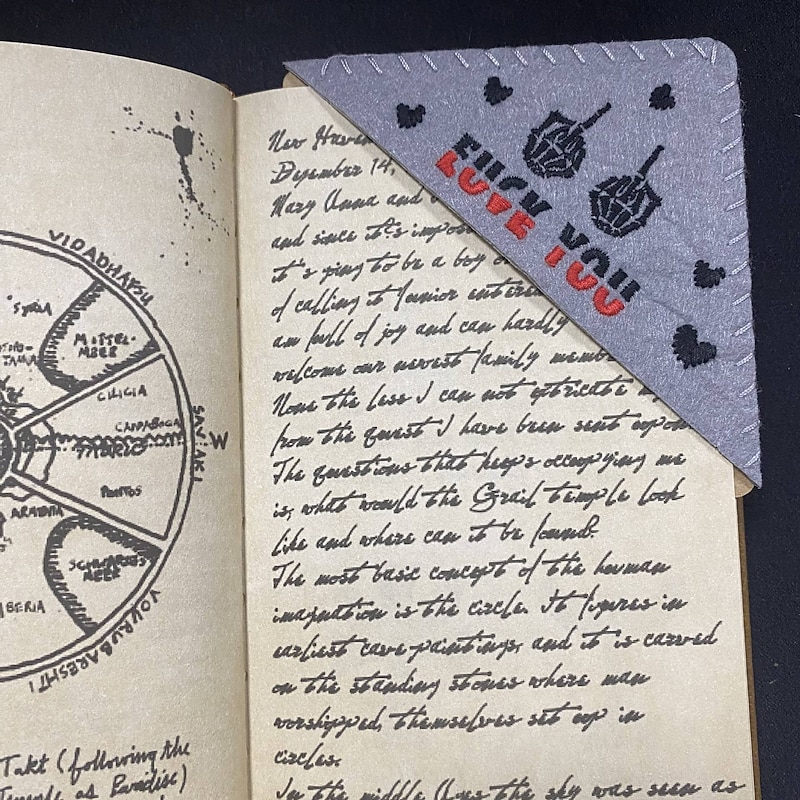 VIDADHAFSU
SYRIA
MITTEL-
MEER
CILICIA
CAPPADOCIA
PONTOS
SAVAKI
W
ARMENIA
SCHWARZES
MEER
IBERIA
VOURUBARESHTI
Takt (following the
Temple as Paradise)
FUCK YOU
LOVE YOU
New Haven
December 14,
Mary Anna and
and since it's impos
it's going to be a boy o
of calling it Junior entered
am full of joy and can hardly
welcome our newest family membe
None the less I can not extricate my
from the quest I have been sent upon.
The questions that keeps occupying me
is, what would the Grail temple look
like and where can it be found?
The most basic concept of the human
imagination is the circle. It figures in
earliest cave paintings, and it is carved
on the standing stones where man
worshipped, themselves set up in
circles.
In the middle Ages the sky was seen as